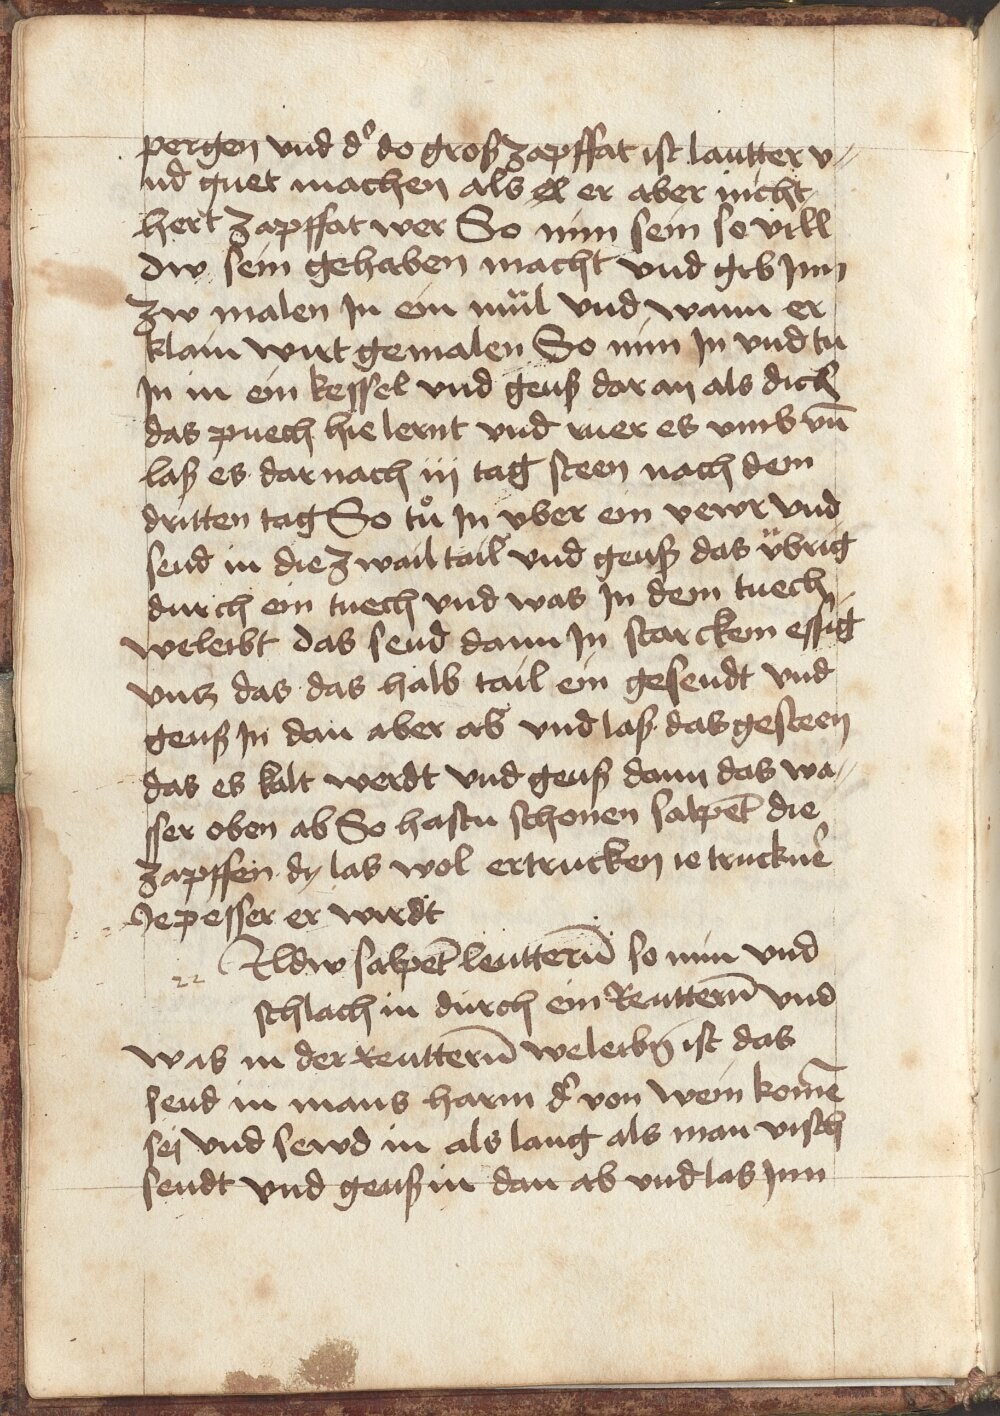 pergen und d' do groß zapffat ist lautter v=
nd guet machen als el er aber nicht
hert zapffat wer So nim sein so vill
dw sein gehaben macht vnd gib Jnn
zw malen In ein mül vnd wann er
klain wirt gemalen So nim In vnd tu
In in ein kessel vnd geuß dar an als dick
das puech hie lernt vnd ruer es vmb vn̄
laß es dar nach iij tag steen nach dem
dritten tag So tů In vber ein vewr vnd
send in die zwail tail vnd geuß das übrig
durch ein tuech vnd was In dem tuech
weleibt das send dann In starckem essig
vntz das das halb tail ein gesendt vnd
geuß In dan aber ab vnd laß das gesteen
das es kalt werdt vnd geuß dann das wa=
sser oben ab So hastu schonen salpet̄ die
zapffen dy las wol ertrucken ie truckn̄e
Je pesser er wirdt
22 Wildw salpet̄ leuttern̄ so nim vnd
schlach in durch ein Reuttern̄ vnd
was in der reuttern̄ weleibn̄ ist das
send in mans harm d' von wein kom̄e
sej vnd sewd in als lang als man visch
sendt vnd geuß in dan ab vnd las Jnn